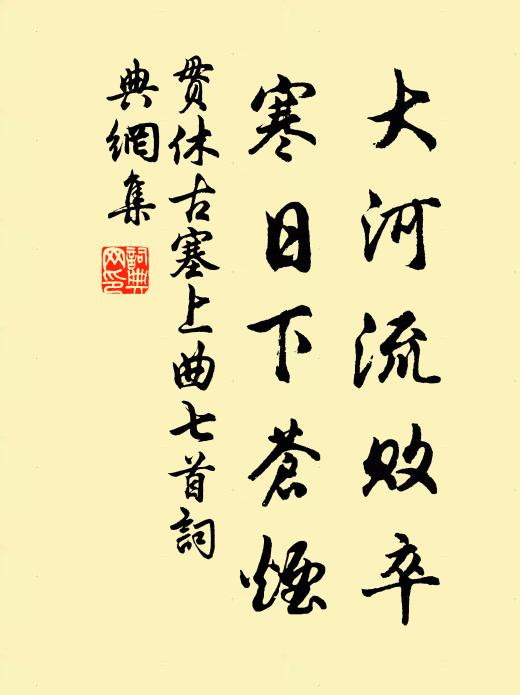 大河流败卒
寒日下蒼煙
貫休古塞上曲七首詞
典網集
詞典
网印